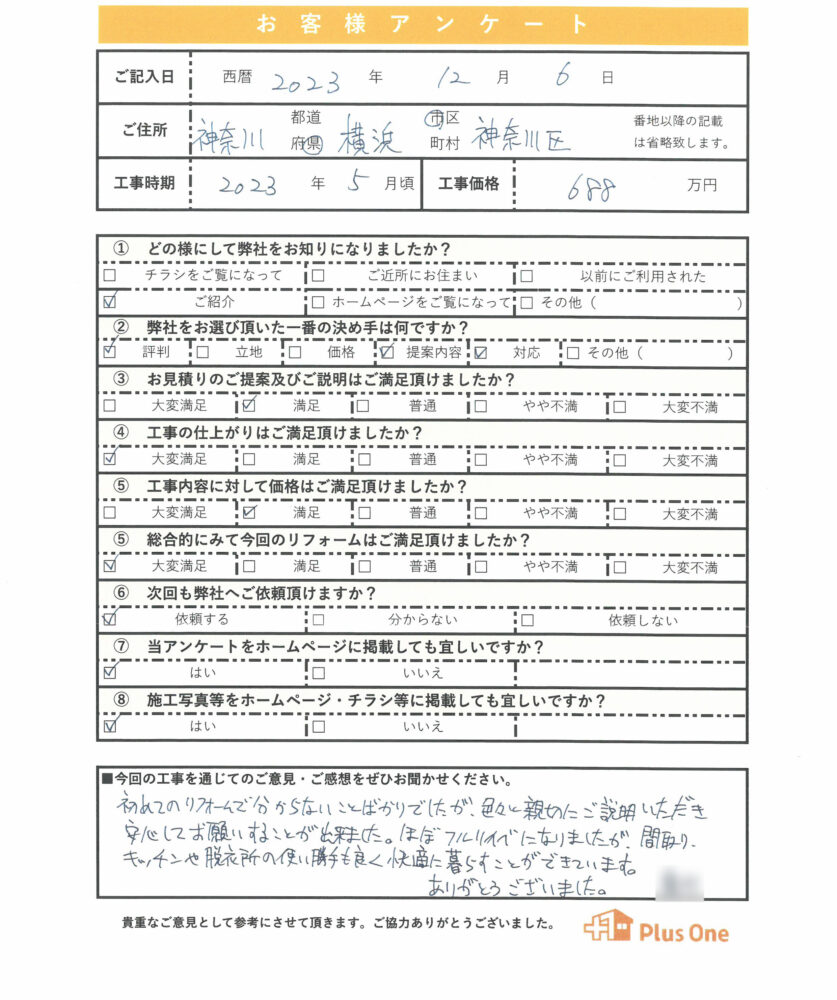 お客様アンケート
ご記入日 西暦 2023 年 12 月 6 日
ご住所 神奈川 都道府県 横浜 市区町村 神奈川区 番地以降の記載は省略致します。
工事時期 2023 年 5 月頃 工事価格 688 万円
① どの様にして弊社をお知りになりましたか？
□ チラシをご覧になって □ ご近所にお住まい □ 以前にご利用された
☑ ご紹介 □ ホームページをご覧になって □ その他（ ）
② 弊社をお選び頂いた一番の決め手は何ですか？
☑ 評判 □ 立地 □ 価格 ☑ 提案内容 ☑ 対応 □ その他（ ）
③ お見積りのご提案及びご説明はご満足頂けましたか？
□ 大変満足 ☑ 満足 □ 普通 □ やや不満 □ 大変不満
④ 工事の仕上がりはご満足頂けましたか？
☑ 大変満足 □ 満足 □ 普通 □ やや不満 □ 大変不満
⑤ 工事内容に対して価格はご満足頂けましたか？
□ 大変満足 ☑ 満足 □ 普通 □ やや不満 □ 大変不満
⑤ 総合的にみて今回のリフォームはご満足頂けましたか？
☑ 大変満足 □ 満足 □ 普通 □ やや不満 □ 大変不満
⑥ 次回も弊社へご依頼頂けますか？
☑ 依頼する □ 分からない □ 依頼しない
⑦ 当アンケートをホームページに掲載しても宜しいですか？
☑ はい □ いいえ
⑧ 施工写真等をホームページ・チラシ等に掲載しても宜しいですか？
☑ はい □ いいえ
■今回の工事を通じてのご意見・ご感想をぜひお聞かせください。
初めてのリフォームで分からないことばかりでしたが、色々と親切にご説明いただき
安心してお願いすることが出来ました。ほぼフルリノベになりましたが、間取り、
キッチンや脱衣所の使い勝手も良く快適に暮らすことができています。
ありがとうございました。
貴重なご意見として参考にさせて頂きます。ご協力ありがとうございました。
Plus One